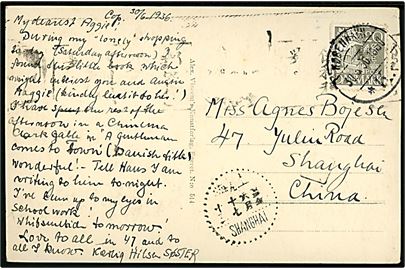 Cop. 30/5. 1936.
My dearest Aggie!
During my "lonely" shopping
to-day (Saturday afternoon) I
found this little book which
might interest you and Annie
Maggie (kindly lend it to her!)
I have spent the rest of the
afternoon in a Cinema
Clark Gable in "A gentleman
comes to Town" (Danish title)
Wonderful! - Tell Hans I am
writing to him to-night.
I've been up to my eyes in
school work!
Whitsuntide to-morrow!
Love to all in 47 and to
all I know Kærlig Hilsen SØSTER
Miss Agnes Bojesen
47 Yulin Road
Shanghai
China
SHANGHAI